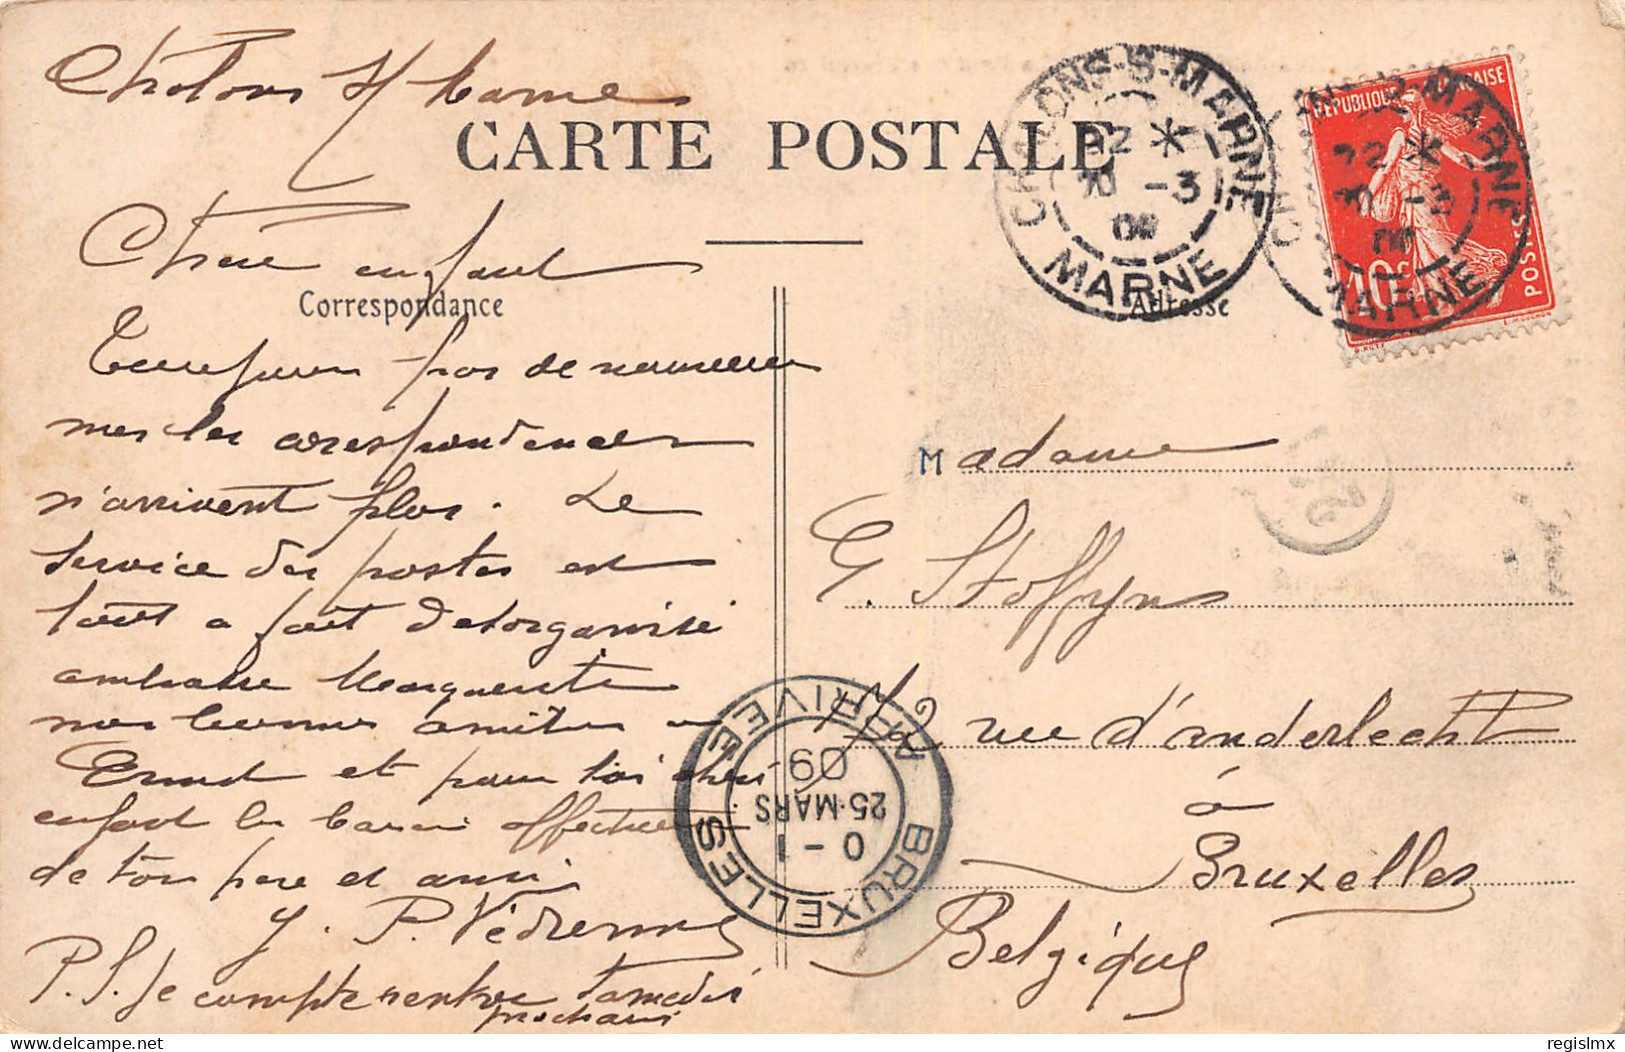 Chalons s/ Marne
CARTE POSTALE
CHALONS-S-MARNE
22 *
20 -3
09
MARNE
REPUBLIQUE FRANÇAISE
10c
POSTES
Chère enfant
Correspondance
Adresse
pas de nouvelles
mes les corespondences
n'arrivent plus. Le
service des postes est
tout a fait désorganisé
embrasse Marguerite
nos bonnes amitiés a
Ernest et pour toi chère
enfant les baisers affectueux
de ton père et ami
J. P. Védrenne
P.S. Je compte rentrer samedi
prochain
Madame
G. Stoffyn
12 rue d'anderlecht
à
Bruxelles
Belgique
BRUXELLES ARRIVEE
0 - 1
25·MARS
09
delcampe.net
regislmx